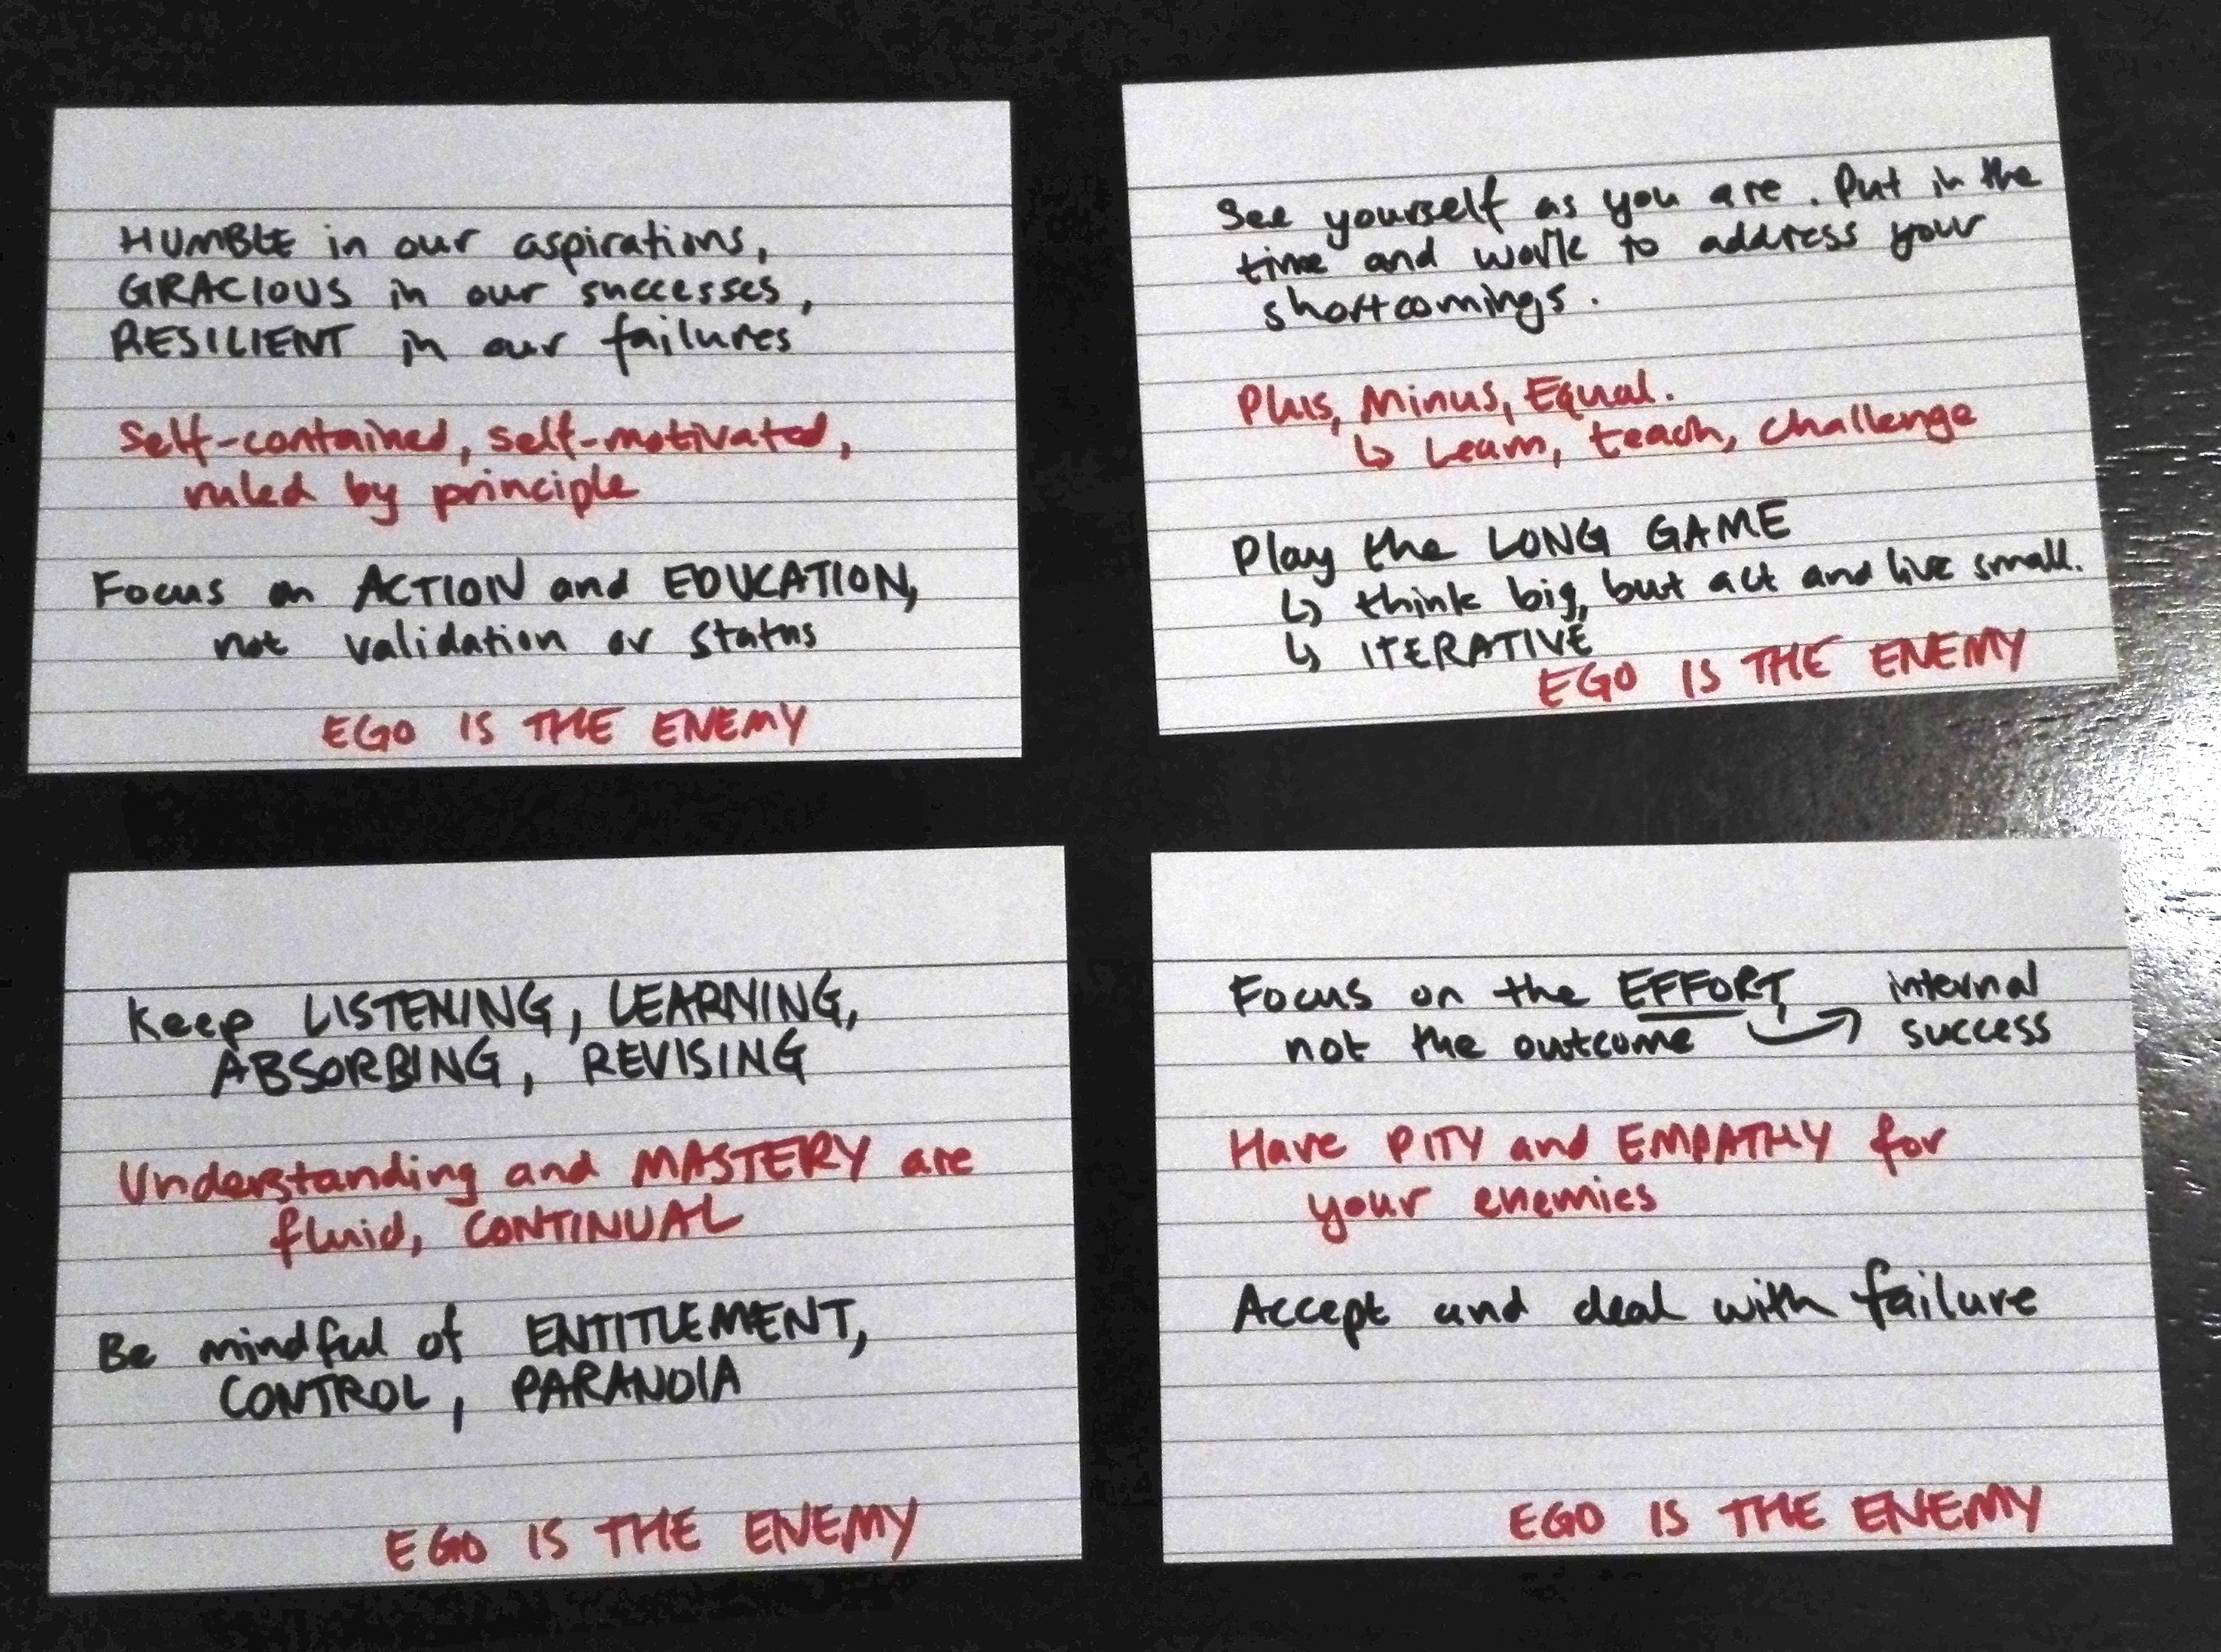 HUMBLE in our aspirations,
GRACIOUS in our successes,
RESILIENT in our failures
Self-contained, self-motivated,
ruled by principle
Focus on ACTION and EDUCATION,
not validation or status
EGO IS THE ENEMY
See yourself as you are. Put in the
time and work to address your
shortcomings.
Plus, Minus, Equal.
↳ Learn, teach, challenge
Play the LONG GAME
↳ think big, but act and live small.
↳ ITERATIVE
EGO IS THE ENEMY
Keep LISTENING, LEARNING,
ABSORBING, REVISING
Understanding and MASTERY are
fluid, CONTINUAL
Be mindful of ENTITLEMENT,
CONTROL, PARANOIA
EGO IS THE ENEMY
Focus on the EFFORT, → internal
not the outcome success
Have PITY and EMPATHY for
your enemies
Accept and deal with failure
EGO IS THE ENEMY